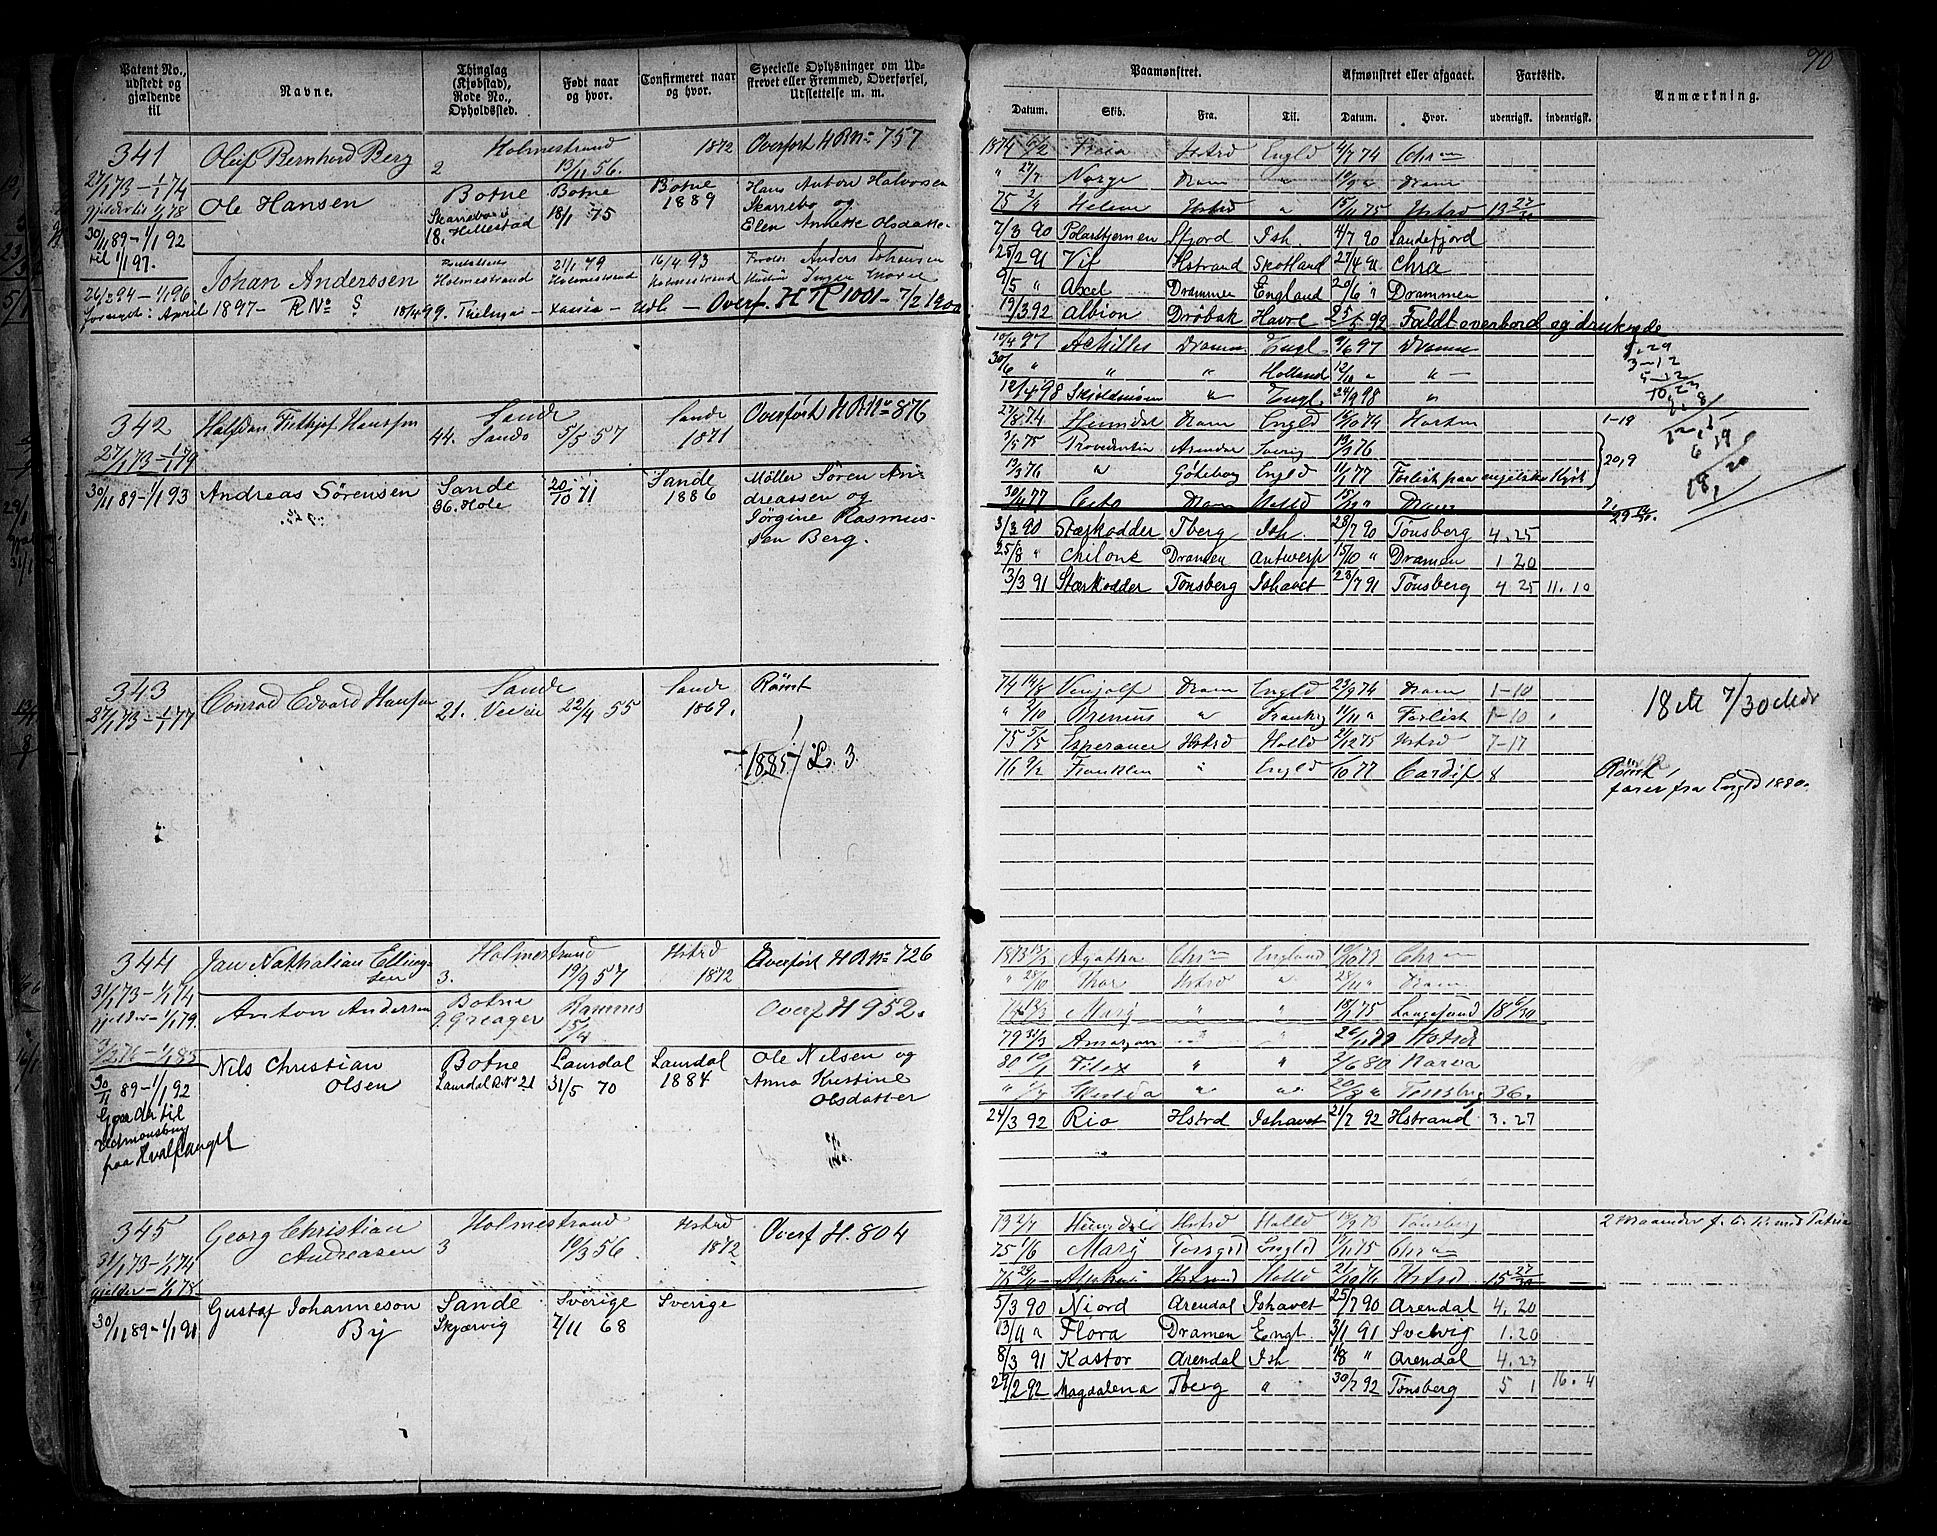 90
Patent No., udstedt og gjældende til
Navne.
Thinglag (Kjøbstad), Rode No., Opholdssted.
Født naar og hvor.
Confirmeret naar og hvor.
Specielle Oplysninger om Udskrevet eller Fremmed, Overførsel, Udslettelse m. m.
Paamønstret.
Afmønstret eller afgaaet.
Fartstid.
Anmærkning.
Datum. Skib. Fra. Til. Datum. Hvor. udenrigsk. indenrigsk.
341 Oluf Bernhard Berg Holmestrand 2 13/11 56. 1872 Overført H R No 757
27/1 73 – 1/1 74
gjelder til 1/1 78
Ole Hansen Botne Skarrebo i 18. Hillestad Botne 18/1 75 Botne 1889 Hans Anton Halvorsen
Skarrebo og
Elen Annette Olsdatter
30/11 89 – 1/1 92
til 1/1 97.
Johan Anderssen Holmestrand 21/1 79 Holmestrand 16/4 93 Holmestrand Anders Johansen
26/2 94 – 1/1 96
April 1897 – R No 18/4 99. Overf. H R 1001 – 7/2 1900
1874 Hstrd Engld 4/7 74 Chr
" 27/7 Norge Dram " Dram
75 Helene Hstrd " 15/11 75 Hstrd 13 27/30
7/3 90 Polarstjernen Sfjord Ish. 4/7 90 Sandefjord
25/2 91 Vif Hstrand Skotland 27/4 91 Chra
9/5 " Axel Drammen England 20/6 " Drammen
19/3 92 Albion Drøbak Havre 25/5 92 Faldt overbord og druknede
10/4 97 Achilles Dramm. Engl. 9/6 97 Dramm
30/6 " " " Holland 12/10 " " –
12/4 98 Skjoldmøen " Engl. 24/9 98 "
342 Halfdan Fridtjof Hanssen Sande 44. Sando 5/5 57 Sande 1871 Overført H R No 876
27/1 73 – 1/1 79
30/11 89 – 1/1 93 Andreas Sörensen Sande 36. Hole 20/10 71 Sande 1886 Möller Sören An-
dreassen og
Jörgine Rasmus-
sen Berg.
27/8 74 Heimdal Dram Engld 16/10 74 Horten 1–19
75 Providentia Arendal Sverig 76
13/3 76 " Göteborg Engld 11/1 77 Forlist paa engelske Kyst 20,9
30/4 77 Dram Holld Dram
3/3 90 Stærkodder Tberg Ish. 28/7 90 Tønsberg 4. 25
25/8 " Chilone Dramen Antwerp 15/10 " Dramen 1 20
3/3 91 Stærkodder Tønsberg Ishavet 28/7 91 Tønsberg 4 25 11. 10
343 Conrad Edvard Hansen Sande 21. 22/4 55 Sande 1869. Rømt
27/1 73 – 1/1 77
1885
74 14/8 Dram Engld 23/9 74 Dram 1–10 18 M 7/30 Mdr
" 2/10 Brennus " Frankrig 11/11 " Forlist 1–10
75 5/5 Esperance Hstrd Holld 21/12 75 Hstrd 7–17
76 9/2 Franklin " Engld 77 Cardif 8
Rømt
farer fra Engld 1880.
344 Jan Nathalian Elling-
sen Holmestrand 3. 19/9 57 Hstrd 1872 Overført H R No 726
31/1 73 – 1/1 74
gjelder – 1/1 79.
Anton Andersen Botne 9. Greager Ramnes 15/4 Overf H 952.
3/2 76 – 1/1 85
Nils Christian
Olsen Botne Laurdal R No 21 Laurdal 31/5 70 Laurdal 1884 Ole Nilsen og
Anna Kristine
Olsdatter
30/11 89 – 1/1 92
paa Hvalfangst
1873 13/3 Agatha Chr England 10/10 73 Chr
" 28/10 Thor Hstrd " 28/11 " Dram
74 13/3 Mary " " 18/1 75 Langesund 18 6/30
79 31/3 Amazon " " Hstrd
80 10/1 " " 2/6 80 Narva
" " " Tønsberg 36.
24/3 92 Rio Hstrd Ishavet 21/7 92 Hstrand 3. 27
345 Georg Christian
Andreasen Holmestrand 3 10/3 56. Hstrd 1872 Overf H. 804
31/1 73 – 1/1 74
gjelder – 1/1 78
30/11 89 – 1/1 91 Gustaf Johanneson
By Sande Skjærvig Sverige 7/11 68 Sverige
73 2/7 Heimdal Hstrd Holld 73 Tønsberg 2 Maaneder
75 1/6 Mary Engld 75 Chr
Hstrand Holld 21/10 76 Hstrd 15 27/30 –
5/3 90 Niord Arendal Ishavet 25/7 90 Arendal 4. 20
13/11 " Flora Dramen Engl. 3/1 91 Svelvig 1. 20
8/3 91 Kastor Arendal Ish 1/8 " Arendal 4. 23
29/2 92 Magdalena Tberg " 30/7 92 Tønsberg 5 1 16. 4